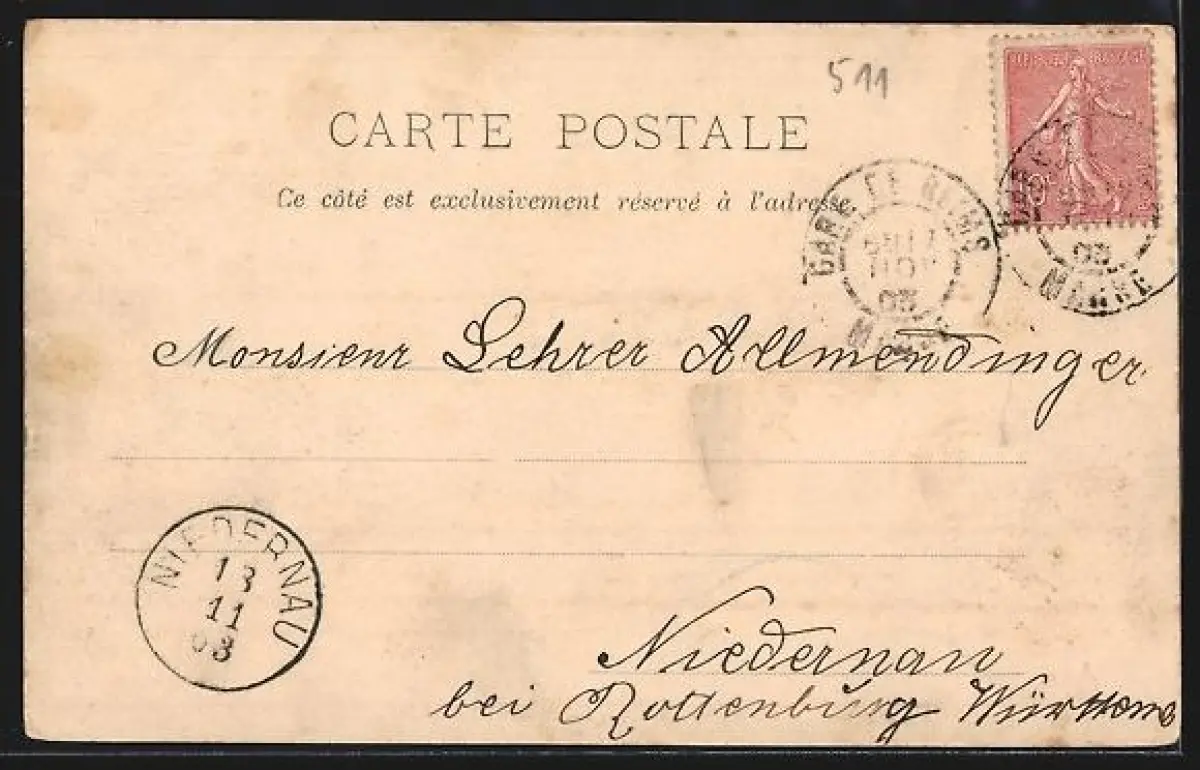 511
CARTE POSTALE
Ce côté est exclusivement réservé à l'adresse.
GARE DE REIMS
03
MARNE
03
MARNE
Monsieur Lehrer Allmendinger
NIEDERNAU
13
11
03
Niedernau
bei Rottenburg Württemb